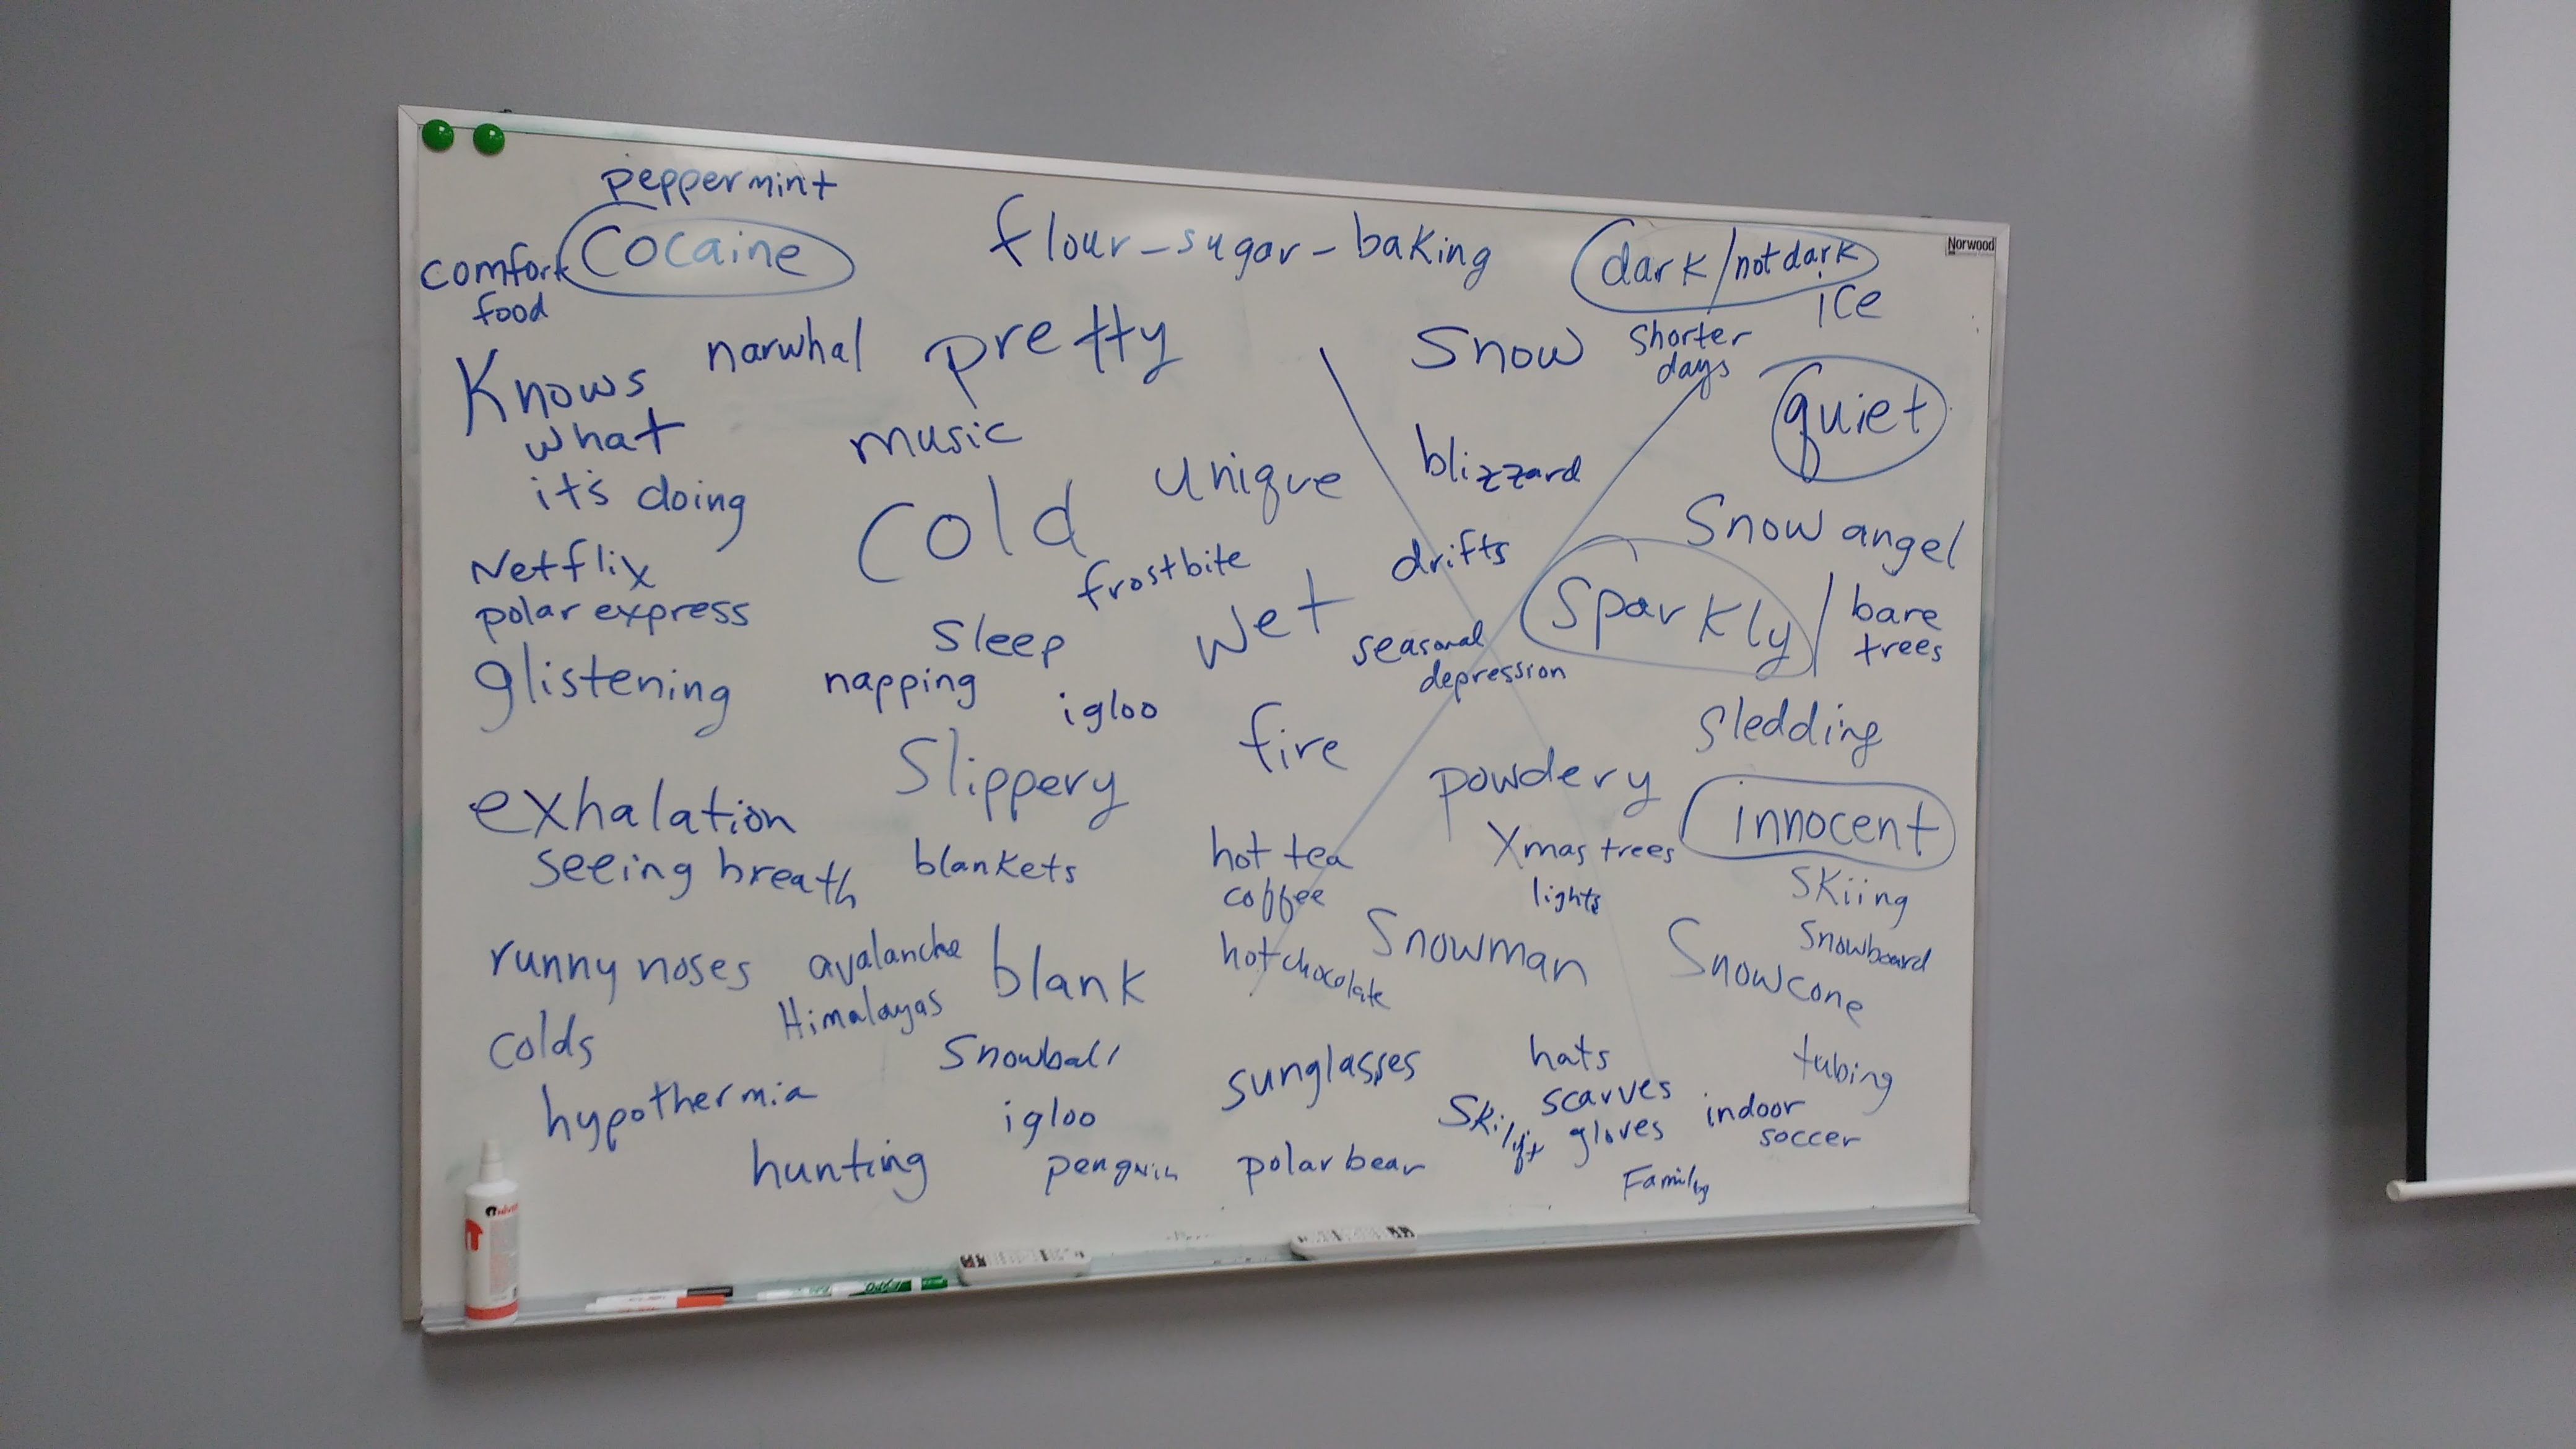 peppermint
cocaine
comfort
food
flour-sugar-baking
dark/not dark
Norwood
ice
narwhal
pretty
Snow
shorter
days
Knows
what
it's doing
music
quiet
unique
blizzard
Cold
Snow angel
Netflix
polar express
frostbite
drifts
Sparkly
bare
trees
Sleep
wet
seasonal
depression
glistening
napping
igloo
fire
Sledding
Slippery
powdery
exhalation
seeing breath
innocent
blankets
hot tea
coffee
hot chocolate
Xmas trees
lights
Skiing
Snowboard
runny noses
colds
avalanche
Himalayas
blank
Snowman
Snowcone
hypothermia
Snowball
igloo
sunglasses
hats
scarves
gloves
Ski lift
tubing
indoor
soccer
hunting
penguin
polar bear
Family
EXPO